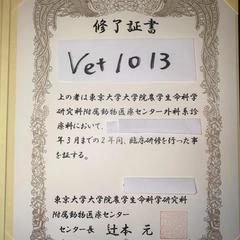 修了証書
Vet1013
上の者は東京大学大学院農学生命科学
研究科附属動物医療センター外科系診
療科において、
年3月までの2年間、臨床研修を行った事
を証する。
東京大学大学院農学生命科学研究科
附属動物医療センター
センター長 辻本 元